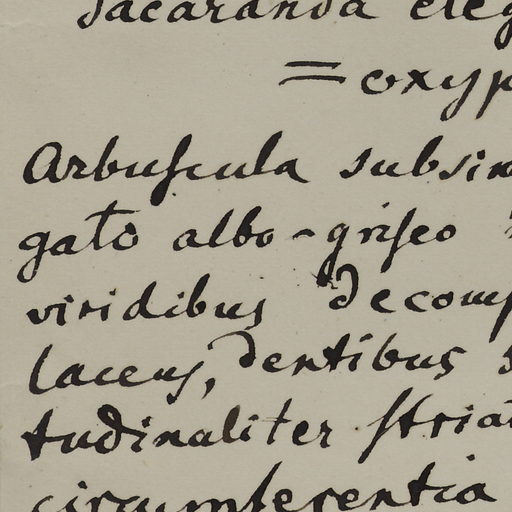 Jacaranda eleg
= oxyp
Arbuscula subsim
gato albo-griseo
viridibus decomp
laceus, dentibus s
tudinaliter striat
circumferentia